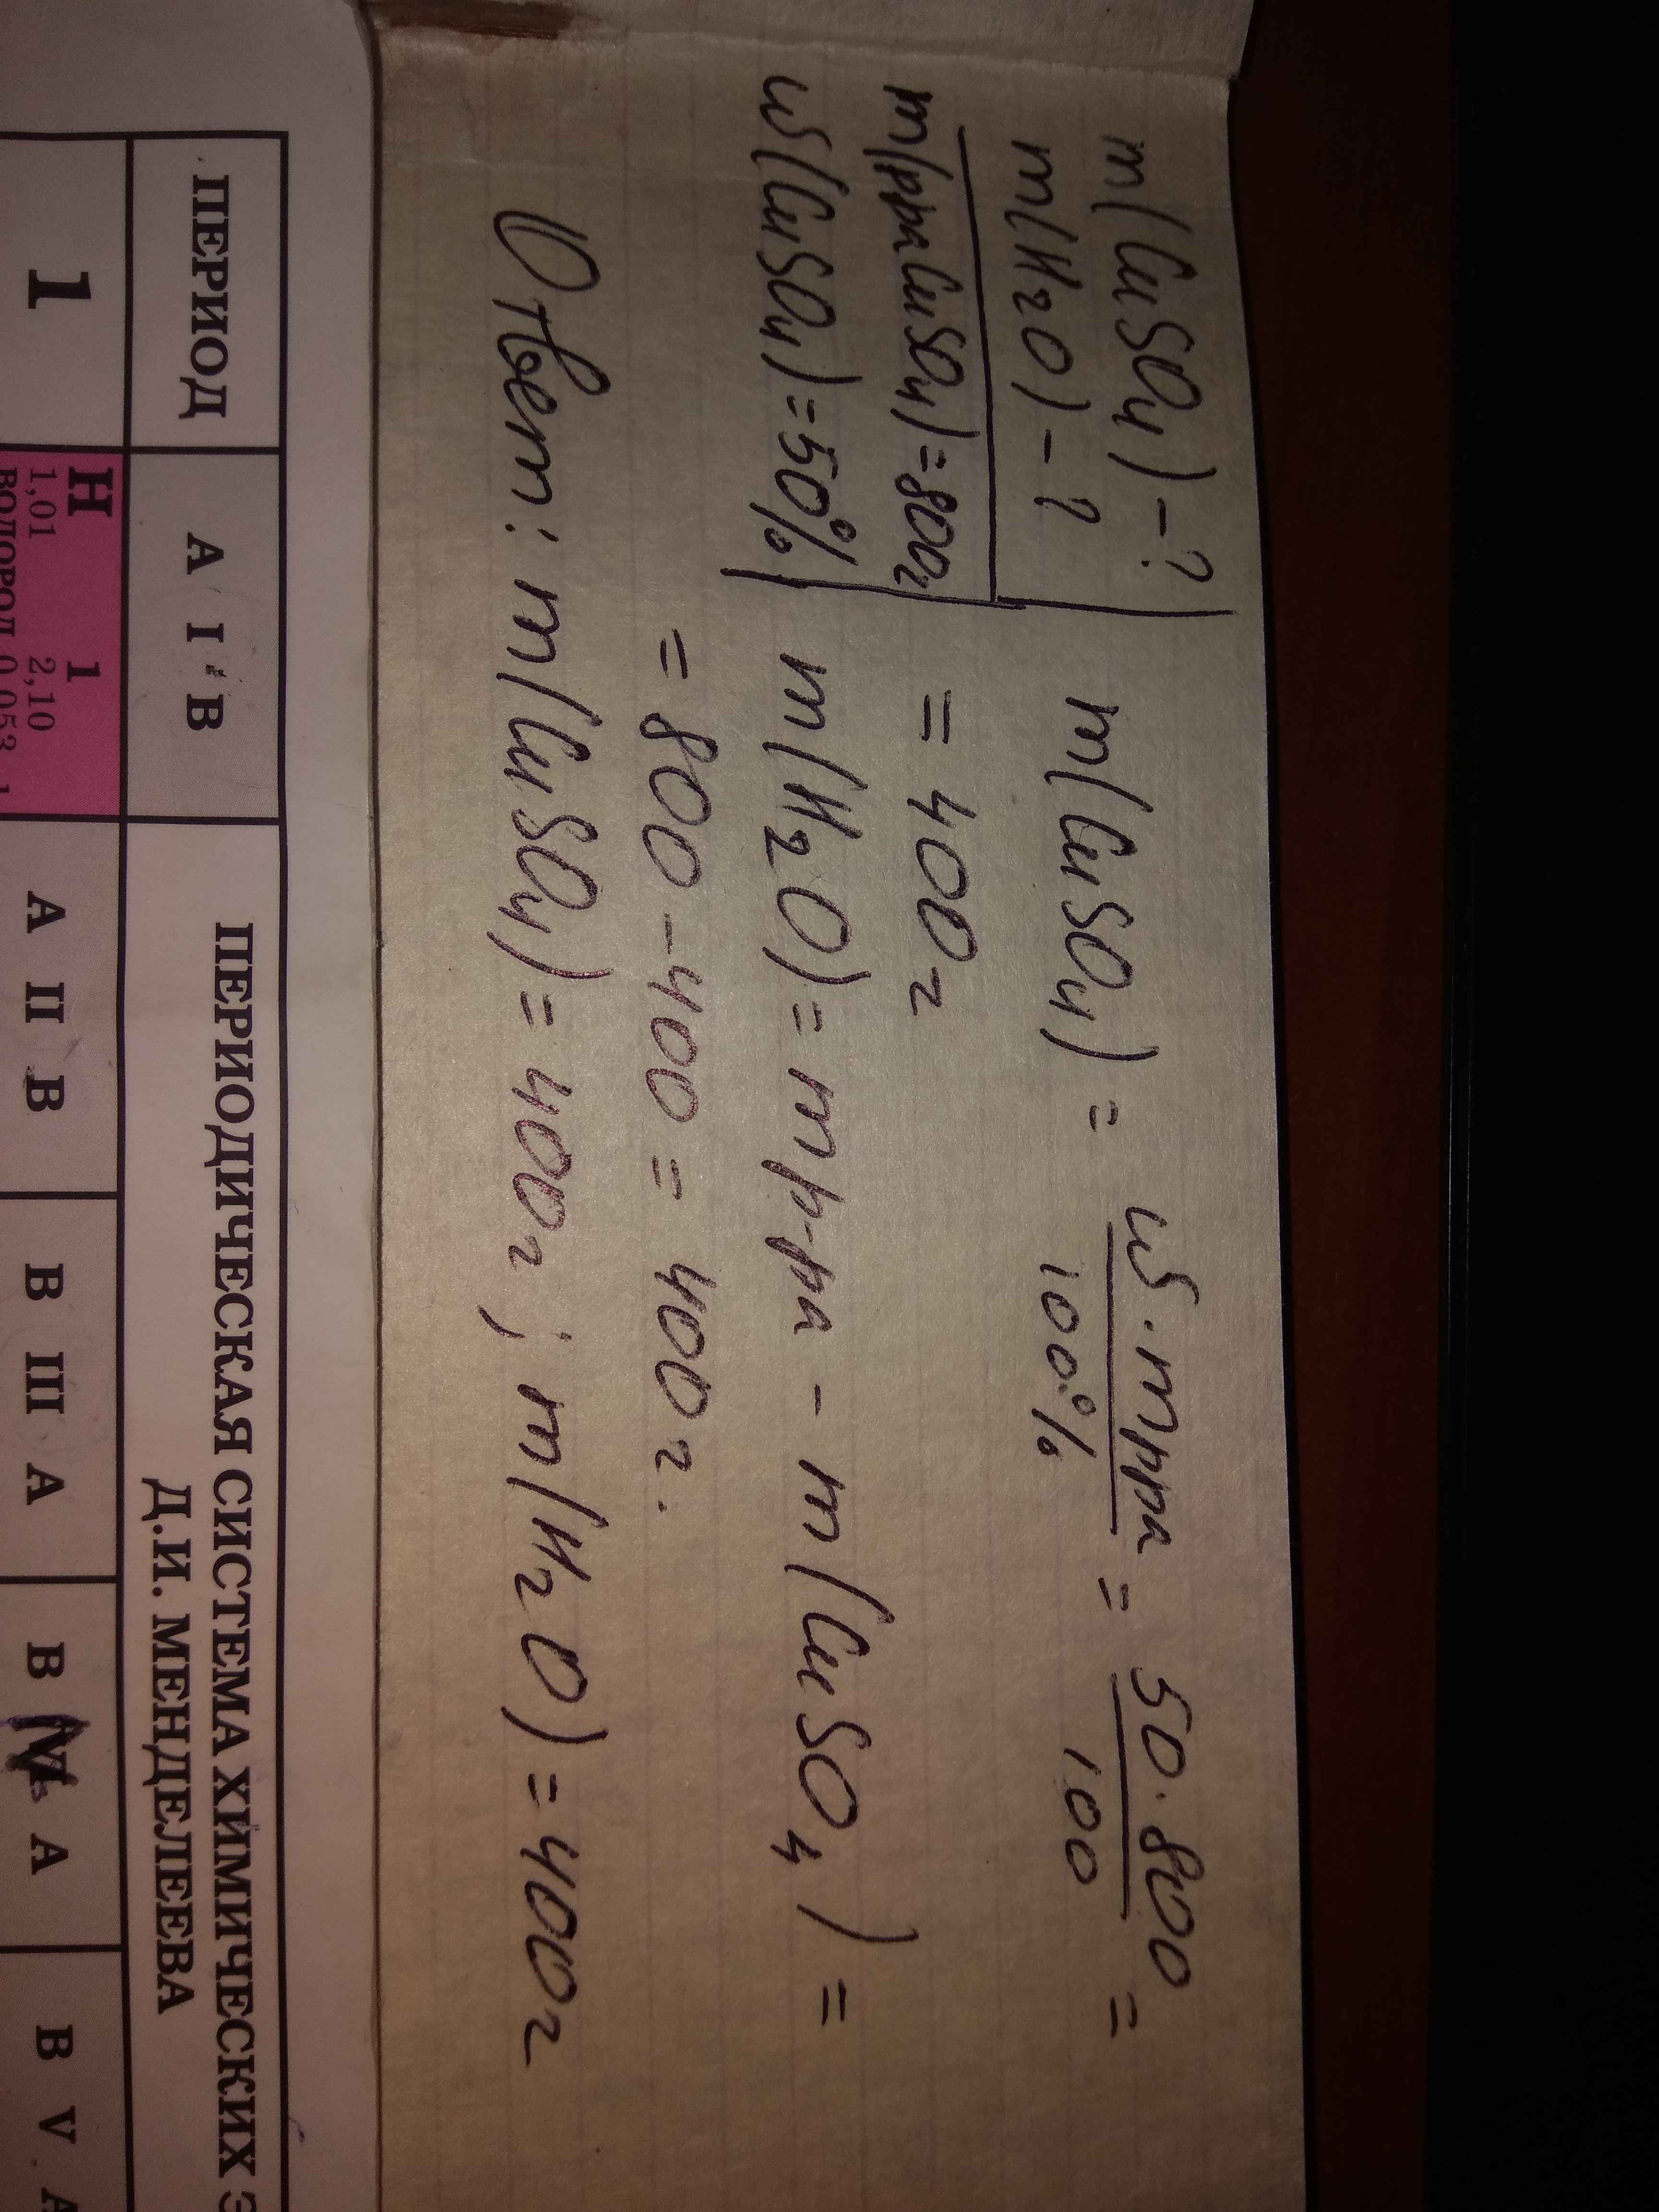 m(CuSO4) - ?
m(H2O) - ?
m(рраCuSO4) = 800г
ω(CuSO4) = 50%
m(CuSO4) = ω · mрра / 100% = 50 · 800 / 100 =
= 400г
m(H2O) = mр-ра - m(CuSO4) =
= 800 - 400 = 400г.
Ответ: m(CuSO4) = 400г; m(H2O) = 400г
ПЕРИОДИЧЕСКАЯ СИСТЕМА ХИМИЧЕСКИХ Э
Д.И. МЕНДЕЛЕЕВА
ПЕРИОД
А I В
А II В
В III А
В IV А
В V А
1
H 1
1,01 2,10
ВОДОРОД 0,053